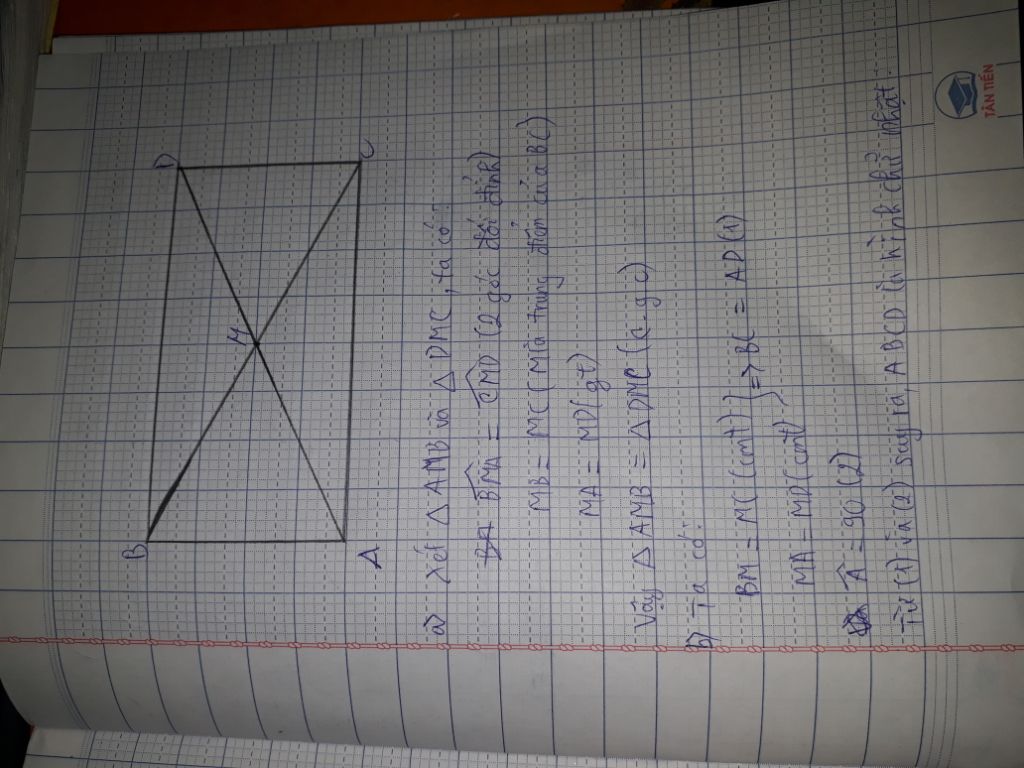 B
D
M
A
C
a) Xét △ AMB và △ DMC, ta có:
BMA = CMD (2 góc đối đỉnh)
MB = MC (M là trung điểm của BC)
MA = MD (gt)
Vậy △ AMB = △ DMC (c.g.c)
b) Ta có:
BM = MC (cmt) } => BC = AD (1)
MA = MD (cmt)
Â = 90 (2)
Từ (1) và (2) suy ra, ABCD là hình chữ nhật
TÂN TIẾN